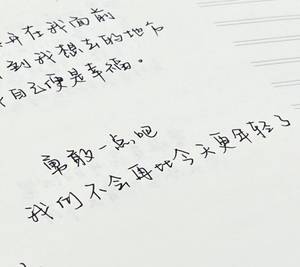 开在我面前
到我想去的地方
自己便是幸福。
勇敢一点吧
我们不会再比今天更年轻了